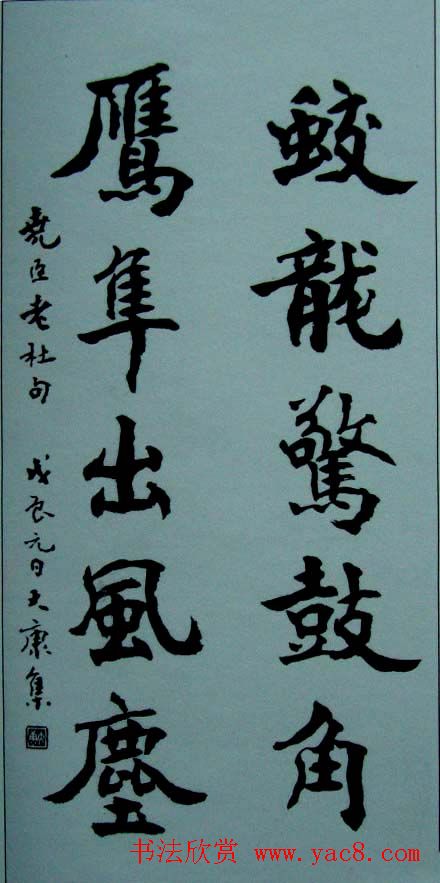 蛟龍驚鼓角
鷹隼出風塵
堯臣老杜句 戊辰元日大康集
书法欣赏 www.yac8.com